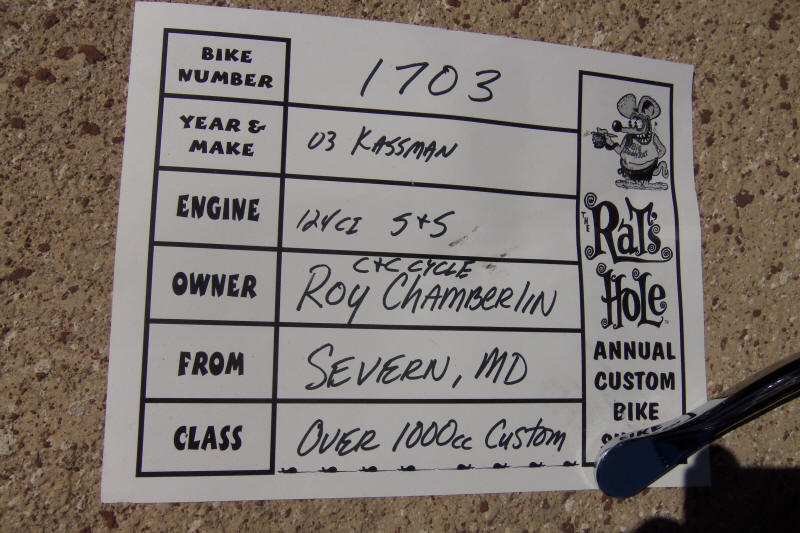 BIKE NUMBER
1703
YEAR & MAKE
03 KASSMAN
ENGINE
124CI S+S
OWNER
C+C CYCLE
ROY CHAMBERLIN
FROM
SEVERN, MD
CLASS
OVER 1000cc CUSTOM
THE
RAT'S
HOLE
ANNUAL
CUSTOM
BIKE